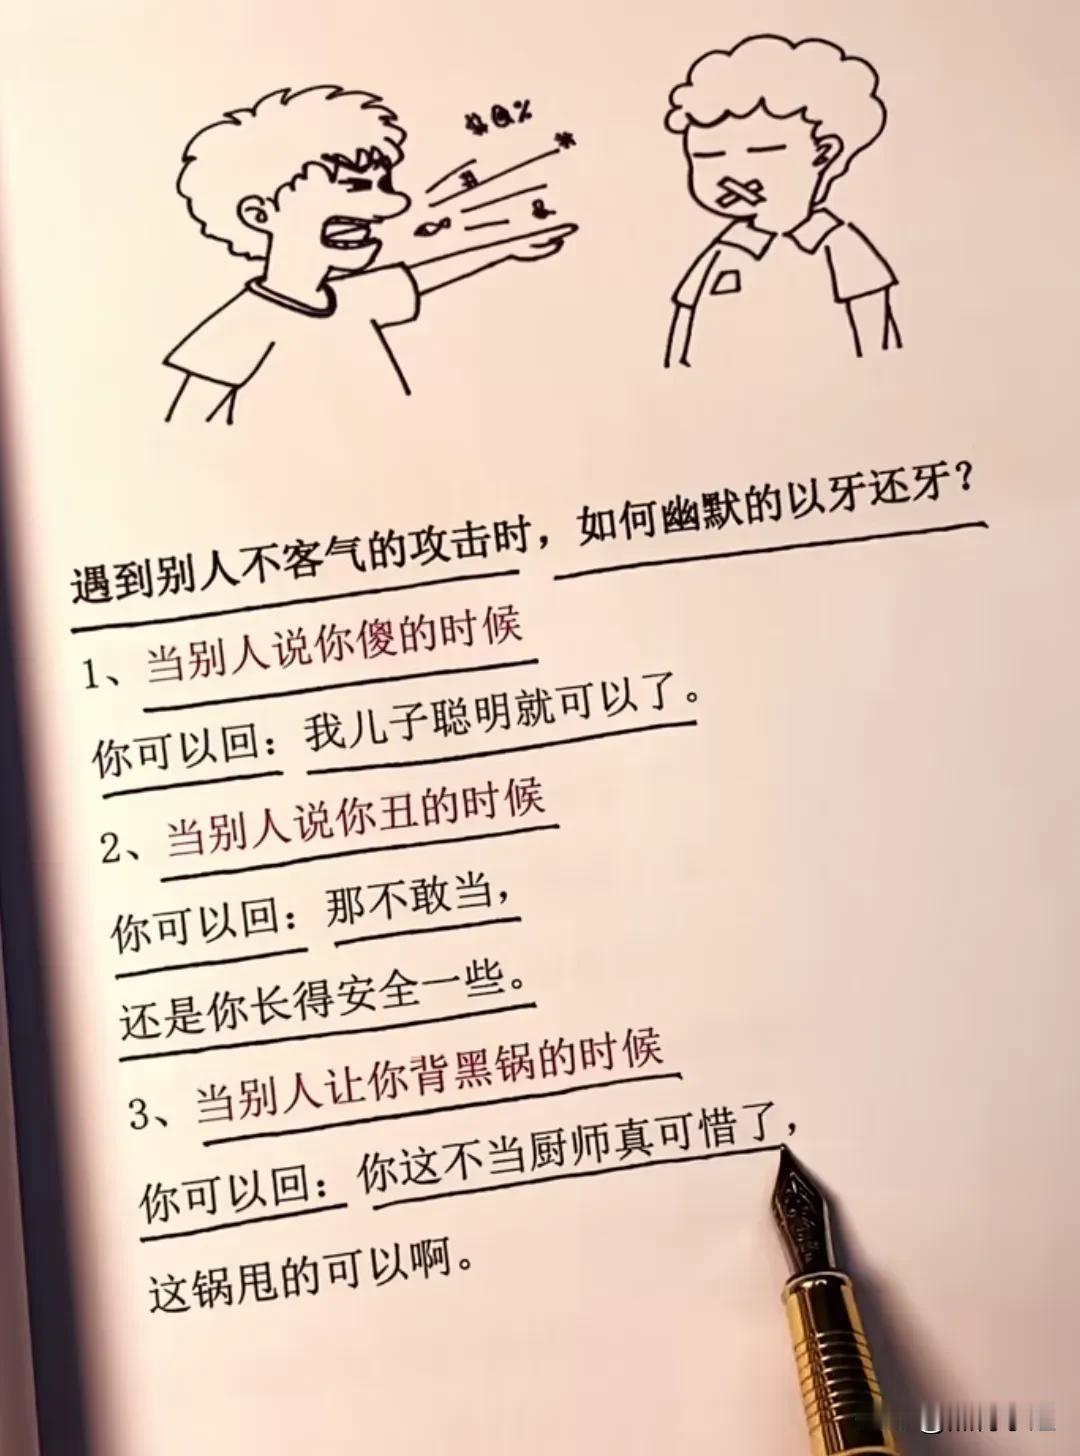 #@%
遇到别人不客气的攻击时，如何幽默的以牙还牙？
1、当别人说你傻的时候
你可以回：我儿子聪明就可以了。
2、当别人说你丑的时候
你可以回：那不敢当，
还是你长得安全一些。
3、当别人让你背黑锅的时候
你可以回：你这不当厨师真可惜了，
这锅甩的可以啊。